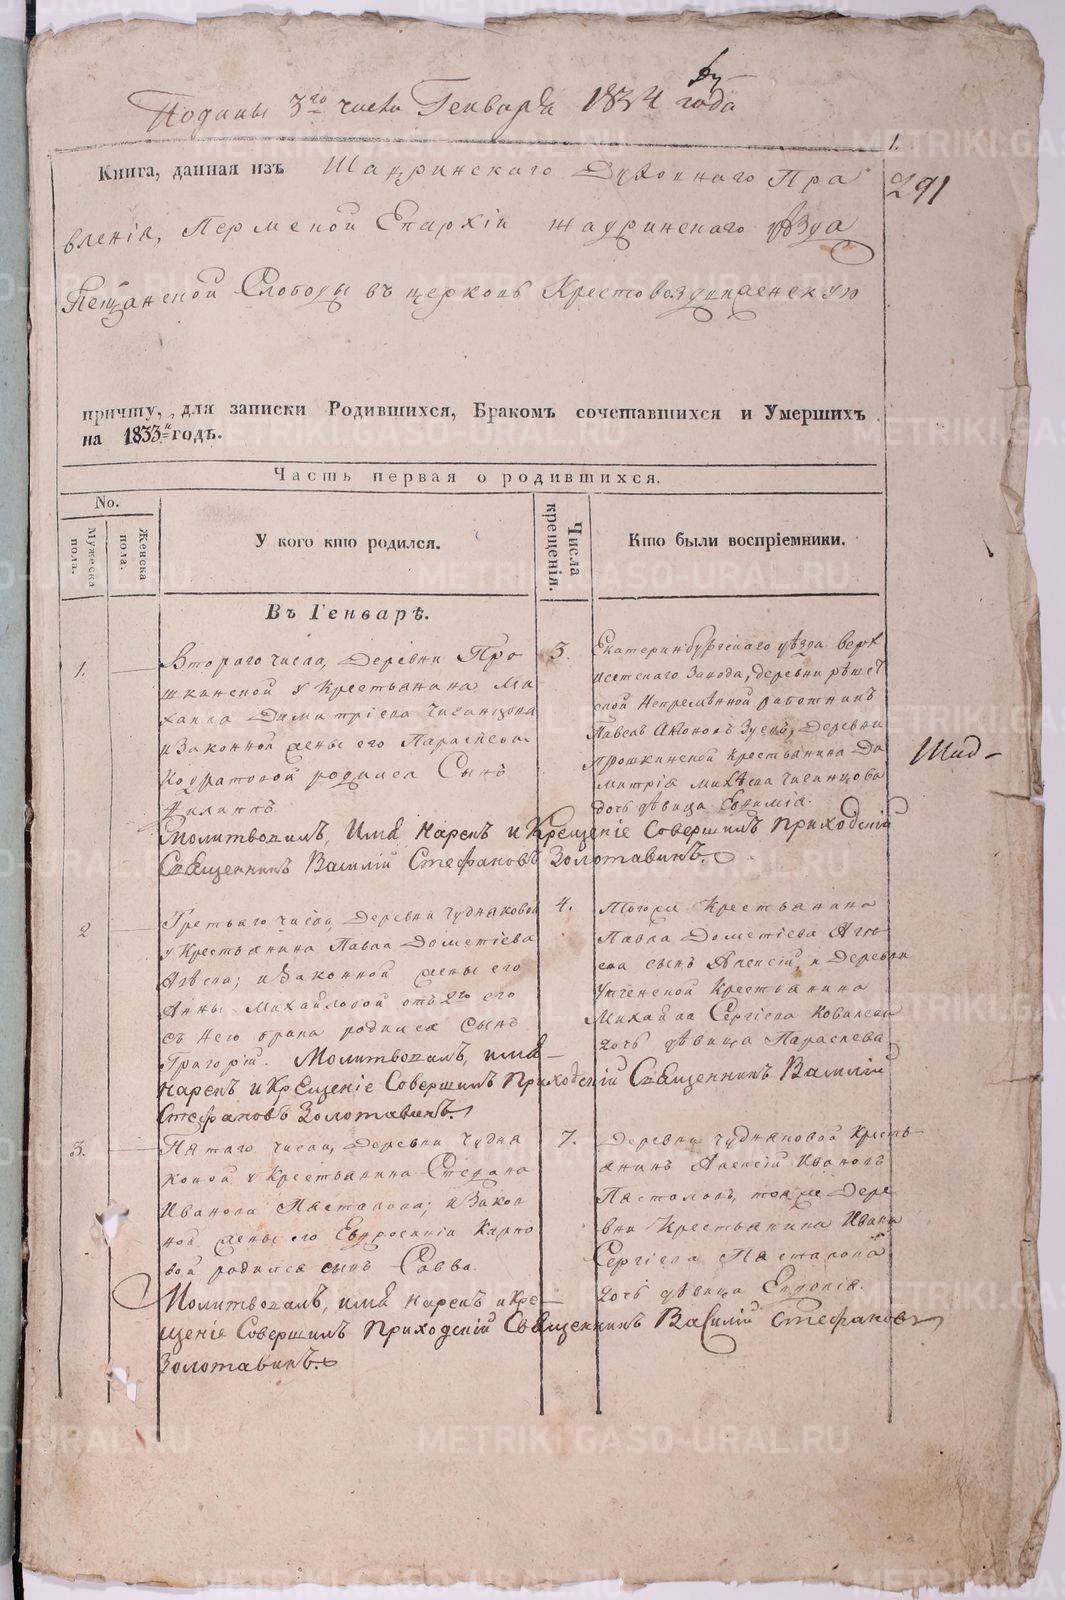 Поданы 3го числа Генваря 1834 года
1.
291
Книга, данная изъ Шадринскаго Духовнаго Пра
вленія, Пермской Епархіи шадринскаго уѣзда
Пещанской Слободы въ церковь Крестовоздвиженскую
причту, для записки Родившихся, Бракомъ сочетавшихся и Умершихъ
на 1833й годъ.
Часть первая о родившихся.
No.
Мужеска пола.
Женска пола.
У кого кто родился.
Числа крещенія.
Кто были воспріемники.
Въ Генварѣ.
1.
Втораго числа, Деревни Про
шкинской у Крестьянина Ми
хаила Димитріева Чиганцова
и Законной жены его Параскевы
Кодратовой родился Сынъ
Филиппъ
3.
Екатеринбургскаго уѣзда Верх
исетскаго Завода, деревни рѣшет
ской Непремѣнной работникъ
Павелъ Антоновъ Зуевъ, Деревни
Прошкинской Крестьянина Ди
митрія Михѣева Чиганцова
дочь дѣвица Евфимія.
Молитвовалъ, Имя нарекъ и Крещеніе Совершилъ Приходскій
Священникъ Василій Стефановъ Золотавинъ.
Шад-
2
Третьяго числа, Деревни Чудняковой
у Крестьянина Павла Дометіева
Агѣева; и Законной жены его
Анны Михайловой отъ 2го его
съ Него брака родился Сынъ
Григорій. Молитвовалъ, имя
4.
Тогоже Крестьянина
Павла Дометіева Агѣ
ева сынъ Алексій, и Деревни
Крестьянина
Михаила Сергіева Ковалева
дочь дѣвица Параскева
нарекъ и Крещеніе Совершилъ Приходскій Священникъ Василій
Стефановъ Золотавинъ.
3.
Пятаго числа, Деревни Чудня
ковой у Крестьянина Стефана
Иванова Пасталова; и Закон
ной жены его Евфросиніи Карпо
вой родился сынъ Савва
7.
Деревни Чудняковой Кресть-
янинъ Алексій Ивановъ
Пасталовъ, тояже Дере
вни Крестьянина Ивана
Сергіева Пасталова
дочь дѣвица Евдокія.
Молитвовалъ, имя нарекъ и Кре-
щеніе Совершилъ Приходскій Священникъ Василій Стефановъ
Золотавинъ.
METRIKI.GASO-URAL.RU